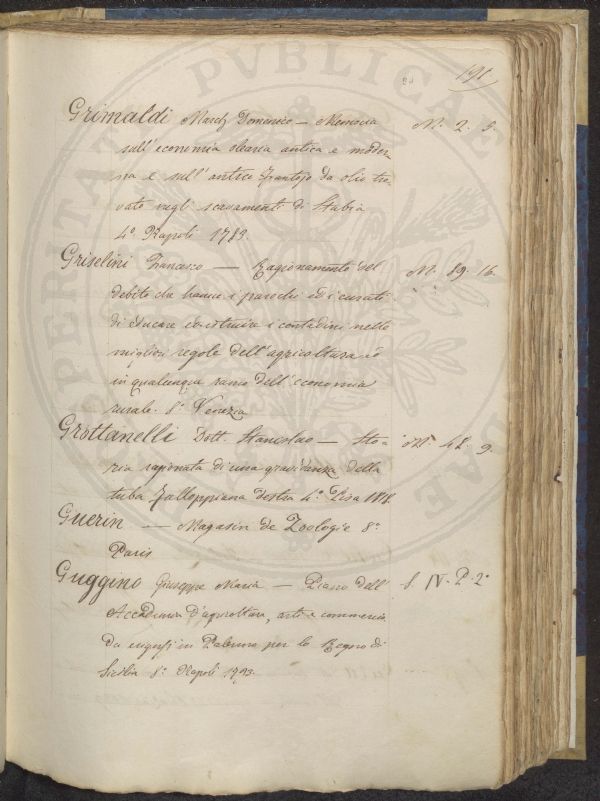 191.
Grimaldi March. Domenico — Memoria N. 2. 5.
sull'economia olearia antica e moder
na e sull'antico frantojo da olio tro
vato negli scavamenti di Stabia
4.° Napoli 1783.
Griselini Francesco — Ragionamento sul N. 89. 16.
debito che hanno i parochi ed i curati
di educare ed istruire i contadini nelle
migliori regole dell'agricoltura ed
in qualunque ramo dell'economia
rurale. 8.° Venezia
Grottanelli Dott. Stanislao — Sto N. 48. 9.
ria ragionata di una gravidanza della
tuba Falloppiana destra 4.° Pisa 1818.
Guerin — Magasin de Zoologie 8.°
Paris
Guggino Giuseppe Maria — Piano dell' S. IV. P. 2.°
Accademia d'agricoltura, arti e commercio
da erigersi in Palermo per lo Regno di
Sicilia 8.° Napoli 1793.